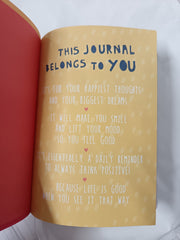 THIS JOURNAL
BELONGS TO YOU
IT'S FOR YOUR HAPPIEST THOUGHTS
AND YOUR BIGGEST DREAMS
IT WILL MAKE YOU SMILE
AND LIFT YOUR MOOD
SO YOU FEEL GOOD
IT'S A DAILY REMINDER
TO ALWAYS THINK POSITIVE!
BECAUSE LIFE IS GOOD
WHEN YOU SEE IT THAT WAY